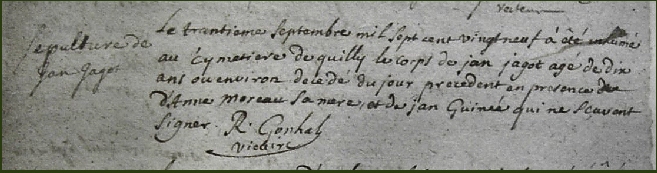 recteur
Sepulture de
jan jagot
Le trantieme septembre mil sept cent vingt neuf à été inhumé
au Cymetiere de quilly le corps de jan jagot age de dix
ans ou environ decedé du jour precedent en presence de
d'Anne Moreau sa mere, et de jan Guiné qui ne scavent
signer R. Gonhal
vicaire